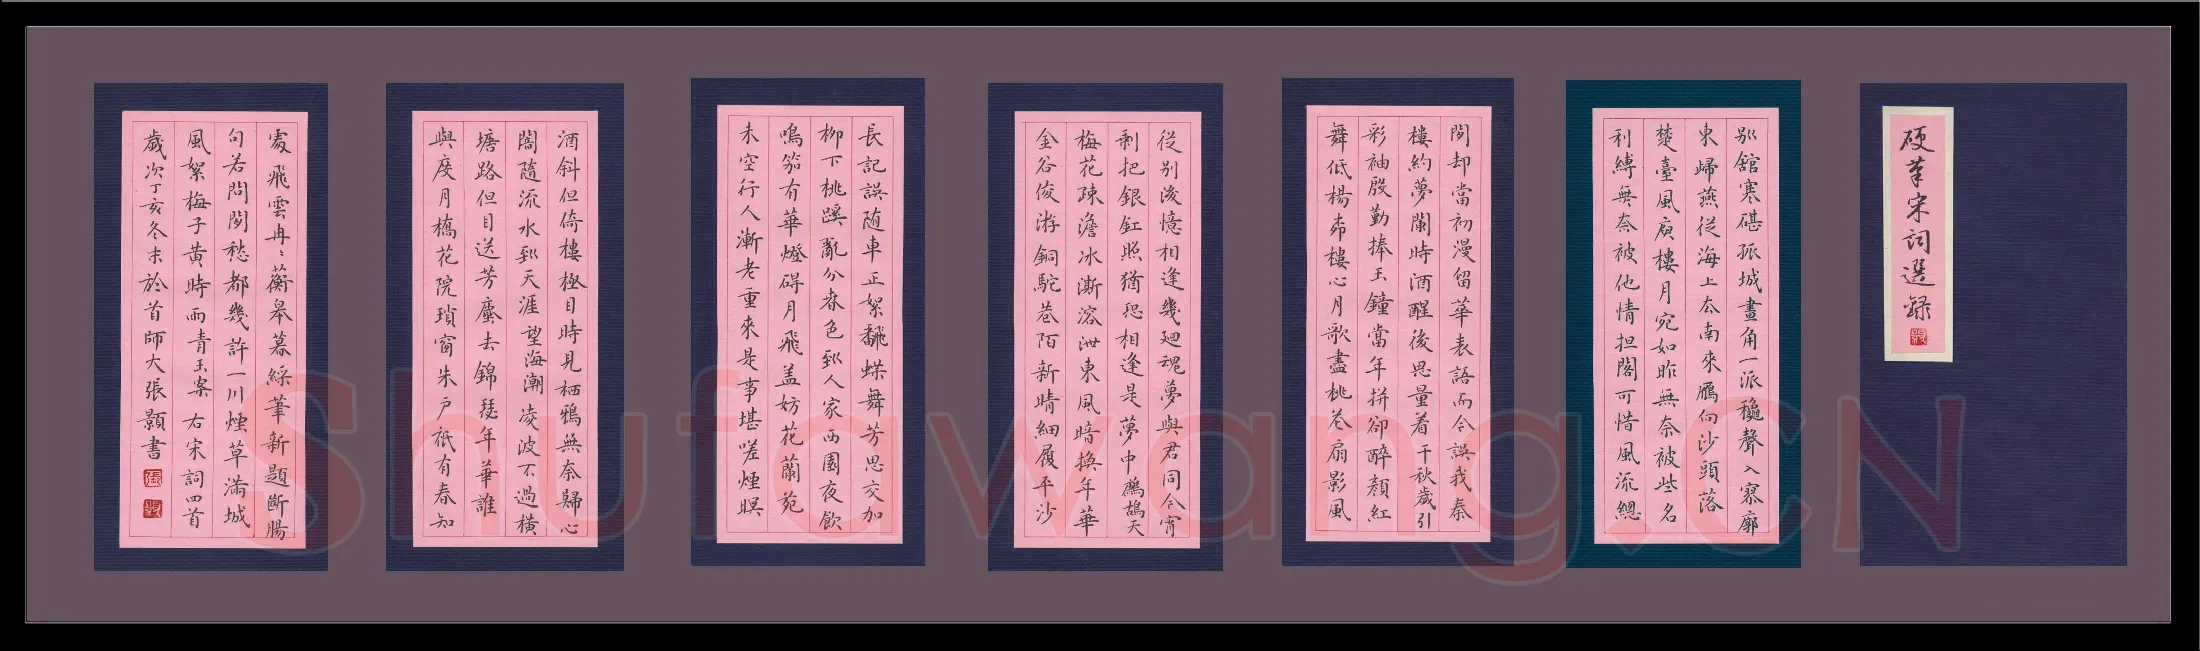 硬筆宋詞選錄
別舘寒碪孤城畫角一派穐聲入寥廓
東歸燕從海上去南來鴈向沙頭落
楚臺風庾樓月宛如昨無奈被些名
利縛無奈被他情担閣可惜風流總
閒却當初漫留華表語而今誤我秦
樓約夢闌時酒醒後思量着千秋歲引
彩袖殷勤捧玉鐘當年拼卻醉顏紅
舞低楊柳樓心月歌盡桃花扇影風
從別後憶相逢幾廻魂夢與君同今宵
剩把銀釭照猶恐相逢是夢中鷓鴣天
梅花疎澹冰澌溶泄東風暗換年華
金谷俊游銅駝巷陌新晴細履平沙
長記誤随車正絮飜蝶舞芳思交加
柳下桃蹊亂分春色到人家西園夜飲
鳴笳有華燈碍月飛盖妨花蘭苑
未空行人漸老重來是事堪嗟煙暝
酒斜但倚樓極目時見栖鴉無奈歸心
闇隨流水到天涯望海潮凌波不過橫
塘路但目送芳塵去錦瑟年華誰
與度月橋花院瑣窗朱戶祇有春知
處飛雲冉〻蘅皋暮綵筆新題斷腸
句若問閒愁都幾許一川煙草滿城
風絮梅子黃時雨青玉案右宋詞四首
歲次丁亥冬末於首師大張顥書
Shufawang.CN